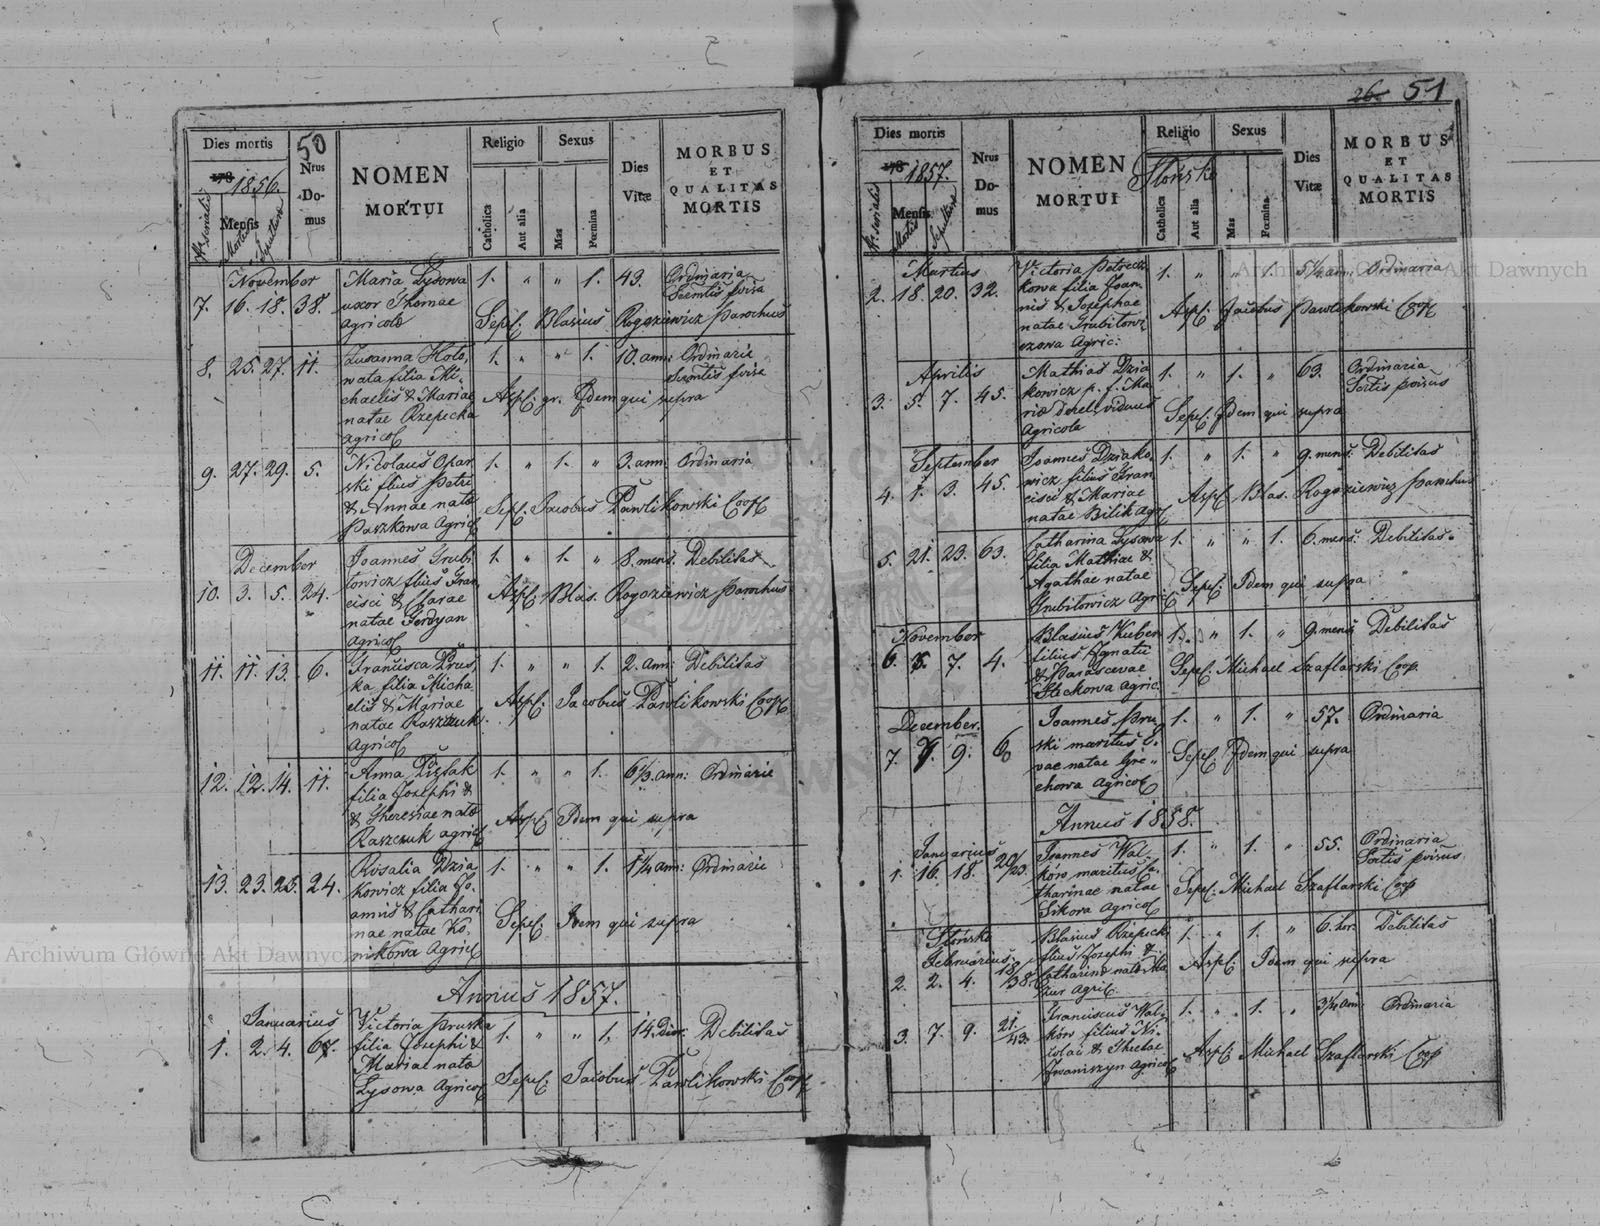 50
Dies mortis
Nrus Domus
NOMEN MORTUI
Religio
Sexus
Dies Vitæ
MORBUS ET QUALITAS MORTIS
178 1856.
Mensis
Nr serialis
Mortis
Sepulturae
Catholica
Aut alia
Mas
Fœmina
November
7. 16. 18. 38.
Maria Lysowa
uxor Thomae
Agricolae
1. " " 1. 43. Ordinaria
Sepel: Blasius Rogoziewicz Parochus
8. 25. 27. 11.
Zusanna Hoło,
wata filia Mi,
chaelis & Mariae
natae Rzepecka
agricol
1. " " 1. 10. ann: Ordinarie
Aspl: gr. Idem qui supra
9. 27. 29. 5.
Nicolaus Opar
ski filius Petri
& Annae nata
Paszkowa Agric
1. " 1. " 3. ann: Ordinaria
Sepl: Jacobus Pawlikowski Coop
December
10. 3. 5. 24.
Joannes Grubi
towicz filius Fran
cisci & Clarae
natae Ferdyan
agricol
1. " 1. " 8. mens: Debilitas
Aspl: Blas. Rogoziewicz Parochus
11. 11. 13. 6.
Francisca Prus
ka filia Micha
elis & Mariae
natae Raszczuk
Agricol
1. " " 1. 2. ann: Debilitas
Aspl: Jacobus Pawlikowski Coop
12. 12. 14. 11.
Anna
filia Josephi &
& Theresiae nata
Raszczuk agric
1. " " 1. 6 1/3. ann: Ordinarie
Aspl: Idem qui supra
13. 23. 25. 24.
Rosalia Dzia
kowicz filia Jo,
annis & Cathari
nae natae Ko,
nikowa Agric
1. " " 1. 1 1/4 ann: Ordinarie
Sepel: Idem qui supra
Annus 1857.
Januarius
1. 2. 4. 67.
Victoria Pruska
filia Josephi &
Mariae nata
Lysowa Agricol
1. " " 1. 14. Dier: Debilitas
Sepel: Jacobus Pawlikowski Coop
26 51
Dies mortis
Nrus Domus
NOMEN MORTUI
Religio
Sexus
Dies Vitæ
MORBUS ET QUALITAS MORTIS
Słońsko
178 1857.
Mensis
Nr serialis
Mortis
Sepulturae
Catholica
Aut alia
Mas
Fœmina
Martius
2. 18. 20. 32.
Victoria Petrecz
kowa filia Joan
nis & Josephae
natae Grubitow
czowa Agric:
1. " " 1. 5 1/2 ann: Ordinaria
Aspl: Jacobus Pawlikowski Coop
Aprilis
3. 5. 7. 45.
Mathias Dzia
kowicz p. f. Ma
riae derel: viduus
Agricola
1. " 1. " 63. Ordinaria
Sepel: Idem qui supra
September
4. 1. 3. 45.
Joannes Dziako,
wicz filius Fran
cisci & Mariae
natae Bilik Agr
1. " 1. " 9. mens: Debilitas
Aspl: Blas. Rogoziewicz Parochus
5. 21. 23. 63.
Catharina Lysowa
filia Mathiae &
Agathae natae
Grubitowicz Agric
1. " " 1. 6. mens: Debilitas.
Sepel: Idem qui supra
November
6. 5. 7. 4.
Blasius Kuber
filius Ignatii
& Parascevae
Steckowa Agric:
1. " 1. " 9. mens Debilitas
Sepel: Michael Szaflarski Coop.
December.
7. 7. 9. 60
Joannes Pru
ski maritus E,
vae natae Gre"
chowa Agricol
1. " 1. " 57. Ordinaria
Sepel: Idem qui supra
Annus 1858.
Januarius
1. 16. 18. 20/23.
Joannes Wal,
ków maritus Ca,
tharinae natae
Sikora Agricol
1. " 1. " 55. Ordinaria
Sepel: Michael Szaflarski Coop
Słońsko
Februarius.
2. 2. 4. 18/38.
Blasius Rzepecki
filius Josephi &
Catharinae natae Ma
zur Agric
1. " 1. " 6. hor: Debilitas
Aspl: Idem qui supra
3. 7. 9. 21/43.
Franciscus Wal,
ków filius Ni,
colai & Theclae
Iwaniszyn Agricol
1. " 1. " 3/4 ann: Ordinaria
Aspl: Michael Szaflarski Coop
Archiwum Główne Akt Dawnych
Archiwum Główne Akt Dawnych